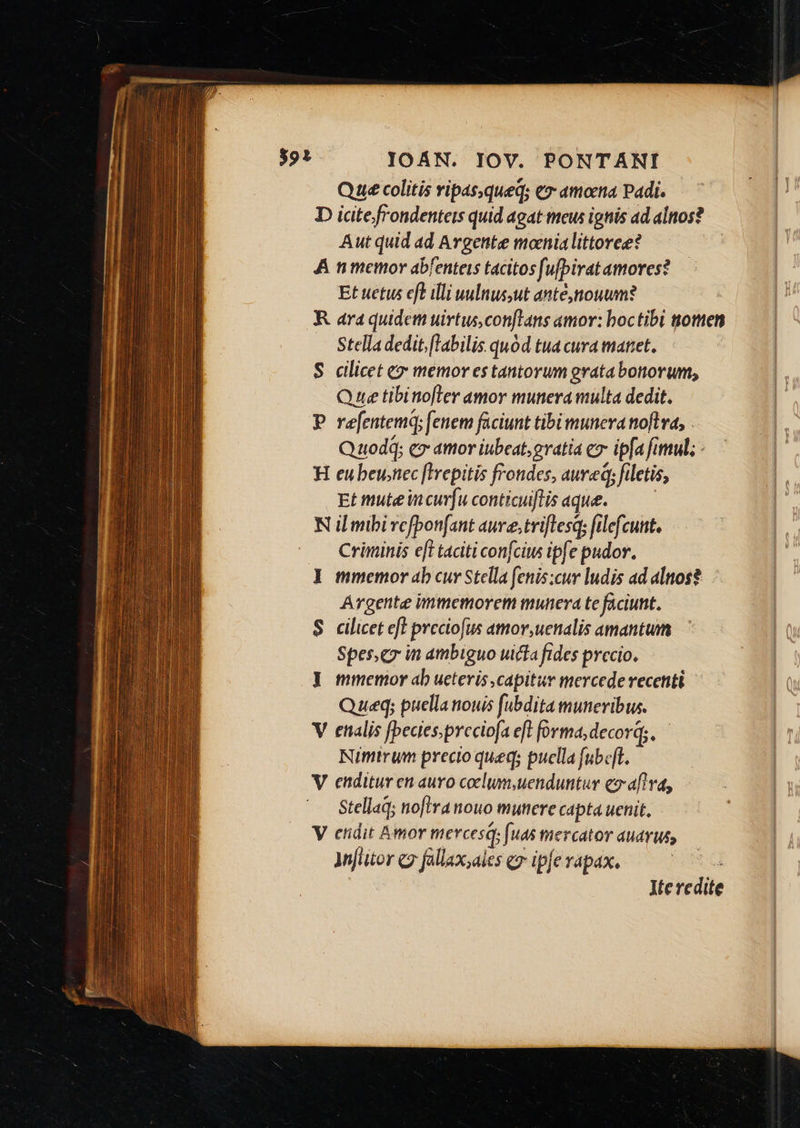 592 IOAN. IOV. PONTANI
Quæ colitis ripas,queq; & amœna Padi.
D icite,frondenteis quid agat meus ignis ad alnos?
Aut quid ad Argentæ mœnia littoreæ?
A n memor absenteis tacitos suspirat amores?
Et uetus est illi uulnus,ut ante,nouum?
R ara quidem uirtus,constans amor: hoc tibi nomen
Stella dedit,stabilis quòd tua cura manet.
S cilicet & memor es tantorum grata bonorum,
Quæ tibi noster amor munera multa dedit.
P ræsentemq; senem faciunt tibi munera nostra,
Quodq; & amor iubeat,gratia & ipsa simul;
H eu heu,nec strepitis frondes, auræq; siletis,
Et mutæ in cursu conticuistis aquæ.
N il mihi respondsant auræ,tristesq; silescunt.
Criminis est taciti conscius ipse pudor.
I mmemor ah cur Stella senis:cur ludis ad alnos?
Argentæ immemorem munera te faciunt.
S cilicet est preciosus amor,uenalis amantum
Spes,& in ambiguo uicta fides precio.
I mmemor ah ueteris,capitur mercede recenti
Quæq; puella nouis subdita muneribus.
V enalis species,preciosa est forma,decorq;,
Nimirum precio quæq; puella subest.
V enditur en auro cœlum,uenduntur & astra,
Stellaq; nostra nouo munere capta uenit.
V endit Amor mercesq; suas mercator auarus,
Institor & fallax,ales & ipse rapax.
Ite redite